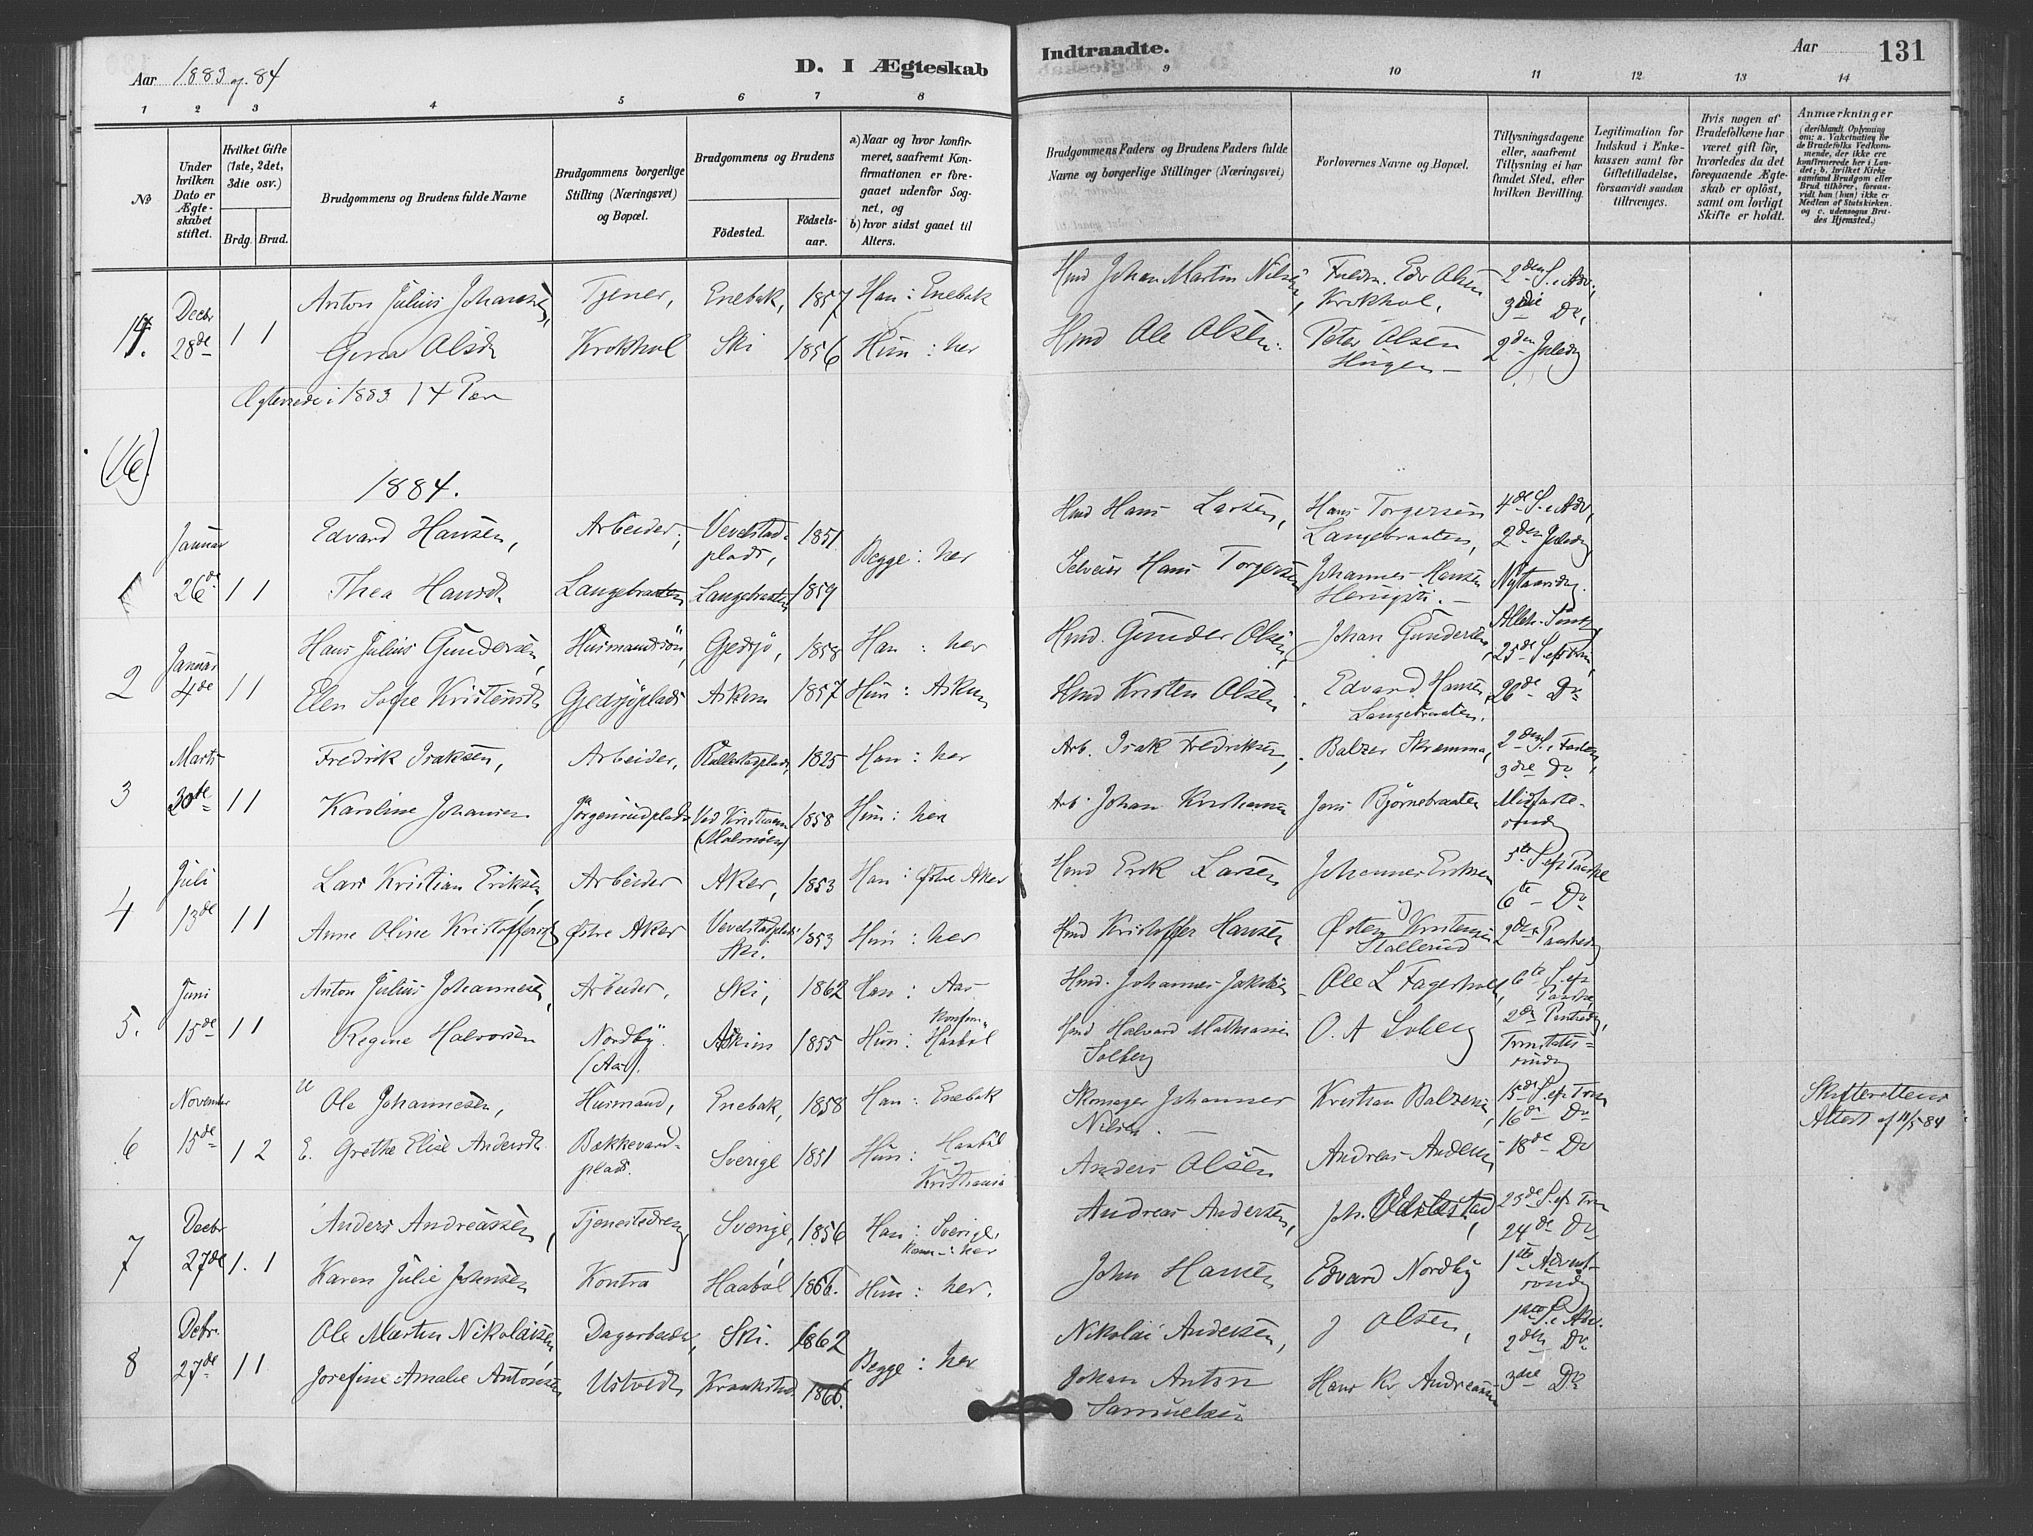 Aar 1883 og 84
D. I Ægteskab
Indtraadte.
Aar
131
1 2 3 4 5 6 7 8
9 10 11 12 13 14
No
Under hvilken Dato er Ægteskabet stiftet.
Hvilket Gifte (1ste, 2det, 3die osv.)
Brdg. Brud.
Brudgommens og Brudens fulde Navne
Brudgommens borgerlige Stilling (Næringsvei) og Bopæl.
Brudgommens og Brudens
Fødested.
Fødselsaar.
a) Naar og hvor konfirmeret, saafremt Konfirmationen er foregaaet udenfor Sognet, og
b) hvor sidst gaaet til Alters.
Brudgommens Faders og Brudens Faders fulde Navne og borgerlige Stillinger (Næringsvei)
Forlovernes Navne og Bopæl.
Tillysningsdagene eller, saafremt Tillysning ei har fundet Sted, efter hvilken Bevilling.
Legitimation for Indskud i Enkekassen samt for Giftetilladelse, forsaavidt saadan tiltrænges.
Hvis nogen af Brudefolkene har været gift før, hvorledes da det foregaaende Ægteskab er opløst, samt om lovligt Skifte er holdt.
Anmærkninger
(deriblandt Oplysning om: a. Vakcination for de Brudefolks Vedkommende, der ikke ere konfirmerede her i Landet; b. hvilket Kirkesamfund Brudgom eller Brud tilhører, forsaavidt han (hun) ikke er Medlem af Statskirken. og c. udensogns Brudes Hjemsted.)
14. Decbr 28de 1 1
Anton Julius Johansen, Tjener, Enebak, 1857 Han: Enebak Hmd Johan Martin Nilsen, Edv Olsen Krokhol, 2den S. i Adv, 3die Do,
Gina Olsd Krokhol Ski 1856 Hun: her Hmd Ole Olsen. Peter Olsen Haugen 2den Juledg
Ægteviede i 1883 14 Par
(16)
1884.
1 Januar 26de 1 1
Edvard Hansen, Arbeider, Vevelstadplads, 1851 Begge: her Hmd Hans Larsen, Hans Torgersen Langebraaten, 4de S. i Adv, 2den Juledg
Thea Hansd. Langebraaten Langebraaten 1859 Selveier Hans Torgersen Johannes Hansen Nytaarsdg.
2 Januar 4de 1 1
Hans Julius Gundersen, Husmandssøn, Gjedsjø, 1858 Han: her Hmd. Gunder Olsen, Johan Gundersen, 25de S. eft Trin,
Elen Sofie Kristensd Gjedsjøplads Askim 1857 Hun: Askim Hmd Kristen Olsen. Edvard Hansen Langebraaten. 26de Do
3 Marts 30de 1 1
Fredrik Isaksen, Arbeider, 1825 Han: her Arb. Isak Fredriksen, Balzer Skremma, 2den S. i Fasten, 3die Do
Karoline Johansen Jørgenrudplads Ved Kristiania (Malmøen) 1858 Hun: her Arb. Johan Kristiansen Jens Bjørnebraaten Midfastesøndg
4 Juli 13de 1 1
Lars Kristian Eriksen, Arbeider Aker, 1853 Han: Østre Aker Hmd Erik Larsen Johannes Eriksen 5te S. ef Paaske 6te Do
Anne Oline Kristoffersd Østre Aker Vevelstadplads Ski. 1853 Hun: her Hmd Kristoffer Hansen Østen Kristensen Stallerud 2den Paaskedg
5. Juni 15de 1 1
Anton Julius Johannesen, Arbeider, Ski, 1862 Han: Aas Hmd. Johannes Jakobsen Ole L Fagerholt, 6te S. ef Paaske 2den Pintsedg,
Regine Halvorsen Nordby (Aas). Askim 1855 Hun: Haabøl Hmd Halvard Mathiasen Solberg O. A Solberg Trinitatissøndg
6 November 15de 1 2
U Ole Johannesen, Husmand, Enebak, 1858 Han: Enebak Skomager Johannes Nilsen. Kristian Balzersen, 15de S. ef Trin 16de Do Skifterettens Attest af 11/5 84
E. Grethe Elise Andersdt. Bækkevardplads. Sverige 1851 Hun: Haabøl Kristiania Anders Olsen Andreas Andersen 18de Do
7 Decbr 27de 1. 1
Anders Andreassen, Tjenestedreng Sverige, 1856 Han: Sverige, her Andreas Andersen, Joh. 23de S. ef Trin 24de Do
Karen Julie Johnsen Kontra Haabøl 1866. Hun: her. John Hansen Edvard Nordby 1ste Adventssøndg
8 Debr. 27de 1 1
Ole Martin Nikolaisen Dagarbeider, Ski. 1862 Begge: her Nikolai Andersen, J Olsen, 1ste S. i Adv. 2den Do
Josefine Amalie Antonsen Ustvedt Kraakstad 1866. Johan Anton Samuelsen Hans Kr. Andreasen 3die Do